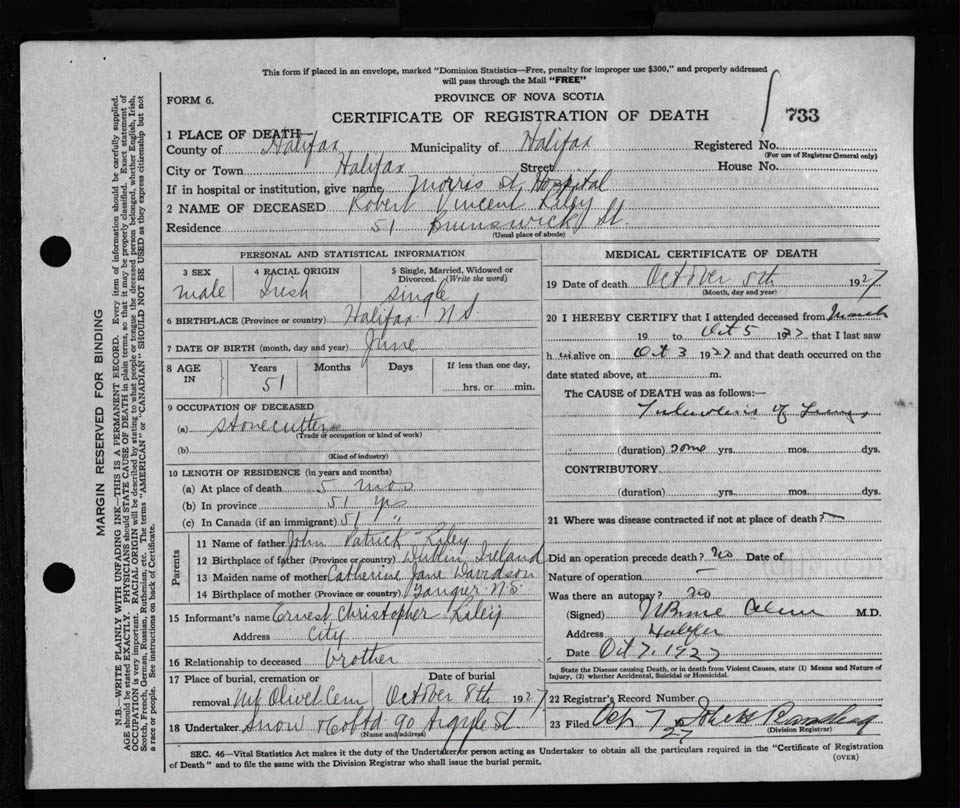 This form if placed in an envelope, marked "Dominion Statistics—Free, penalty for improper use $300," and properly addressed
will pass through the Mail "FREE"
FORM 6.
PROVINCE OF NOVA SCOTIA
CERTIFICATE OF REGISTRATION OF DEATH
733
1 PLACE OF DEATH—
County of Halifax Municipality of Halifax Registered No.
(For use of Registrar General only)
City or Town Halifax Street House No.
If in hospital or institution, give name Morris St Hospital
2 NAME OF DECEASED Robert Vincent Liley
Residence 51 Brunswick St
(Usual place of abode)
PERSONAL AND STATISTICAL INFORMATION
3 SEX 4 RACIAL ORIGIN 5 Single, Married, Widowed or
Divorced. (Write the word)
male Irish single
6 BIRTHPLACE (Province or country) Halifax N.S.
7 DATE OF BIRTH (month, day and year) June
8 AGE IN Years Months Days If less than one day,
51 hrs. or min.
9 OCCUPATION OF DECEASED
(a) Stonecutter
(Trade or occupation or kind of work)
(b)
(Kind of industry)
10 LENGTH OF RESIDENCE (in years and months)
(a) At place of death 5 mos
(b) In province 51 yrs
(c) In Canada (if an immigrant) 51 "
Parents
11 Name of father John Patrick Liley
12 Birthplace of father (Province or country) Dublin Ireland
13 Maiden name of mother Catherine Jane Davidson
14 Birthplace of mother (Province or country) Tangier N.S.
15 Informant's name Ernest Christopher Liley
Address City
16 Relationship to deceased brother
17 Place of burial, cremation or removal Date of burial
Mt Olivet Cem October 8th 1927
18 Undertaker Snow & Co Ltd 90 Argyle St
(Name and address)
MEDICAL CERTIFICATE OF DEATH
19 Date of death October 5th 1927
(Month, day and year)
20 I HEREBY CERTIFY that I attended deceased from March
19 to Oct 5 1927 that I last saw
h im alive on Oct 3 1927 and that death occurred on the
date stated above, at m.
The CAUSE of DEATH was as follows:—
Tuberculosis of Lungs
(duration) some yrs. mos. dys.
CONTRIBUTORY
(duration) yrs. mos. dys.
21 Where was disease contracted if not at place of death? —
Did an operation precede death? No Date of
Nature of operation —
Was there an autopsy? no
(Signed) M.D.
Address Halifax
Date Oct 7, 1927
State the Disease causing Death, or in death from Violent Causes, state (1) Means and Nature of
Injury, (2) whether Accidental, Suicidal or Homicidal.
22 Registrar's Record Number
23 Filed Oct 7 27
(Division Registrar)
SEC. 46—Vital Statistics Act makes it the duty of the Undertaker or person acting as Undertaker to obtain all the particulars required in the "Certificate of Registration
of Death" and to file the same with the Division Registrar who shall issue the burial permit.
(OVER)
MARGIN RESERVED FOR BINDING
N.B.—WRITE PLAINLY WITH UNFADING INK—THIS IS A PERMANENT RECORD. Every item of information should be carefully supplied.
AGE should be stated EXACTLY. PHYSICIANS should STATE CAUSE OF DEATH in plain terms, so that it may be properly classified. Exact statement of
OCCUPATION is very important. RACIAL ORIGIN will be described by stating to what people or tongue the deceased person belonged, whether English, Irish,
Scotch, French, German, Russian, Ruthenian, etc. The terms "AMERICAN" or "CANADIAN" SHOULD NOT BE USED as they express citizenship but not
a race or people. See instructions on back of Certificate.